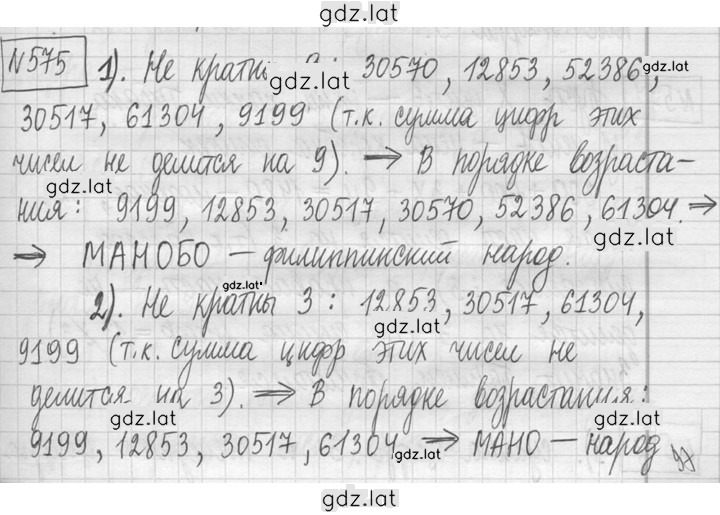 gdz.lat
№575 1). Не кратны : 30570, 12853, 52386,
gdz.lat gdz.lat
30517, 61304, 9199 (т.к. сумма цифр этих
чисел не делится на 9). ⇒ В порядке возраста-
gdz.lat
ния: 9199, 12853, 30517, 30570, 52386, 61304. ⇒
gdz.lat
⇒ МАНОБО — филиппинский народ.
gdz.lat
2). Не кратны 3: 12853, 30517, 61304,
gdz.lat
9199 (т.к. сумма цифр этих чисел не
делится на 3). ⇒ В порядке возрастания:
gdz.lat gdz.lat
9199, 12853, 30517, 61304 ⇒ МАНО — народ
gdz.lat
gdz.lat